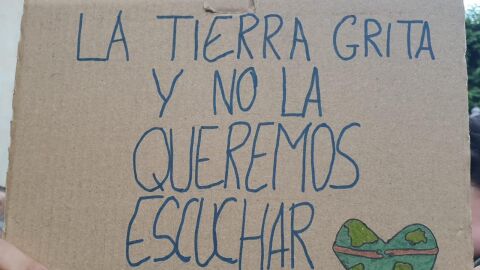 LA TIERRA GRITA
Y NO LA
QUEREMOS
ESCUCHAR